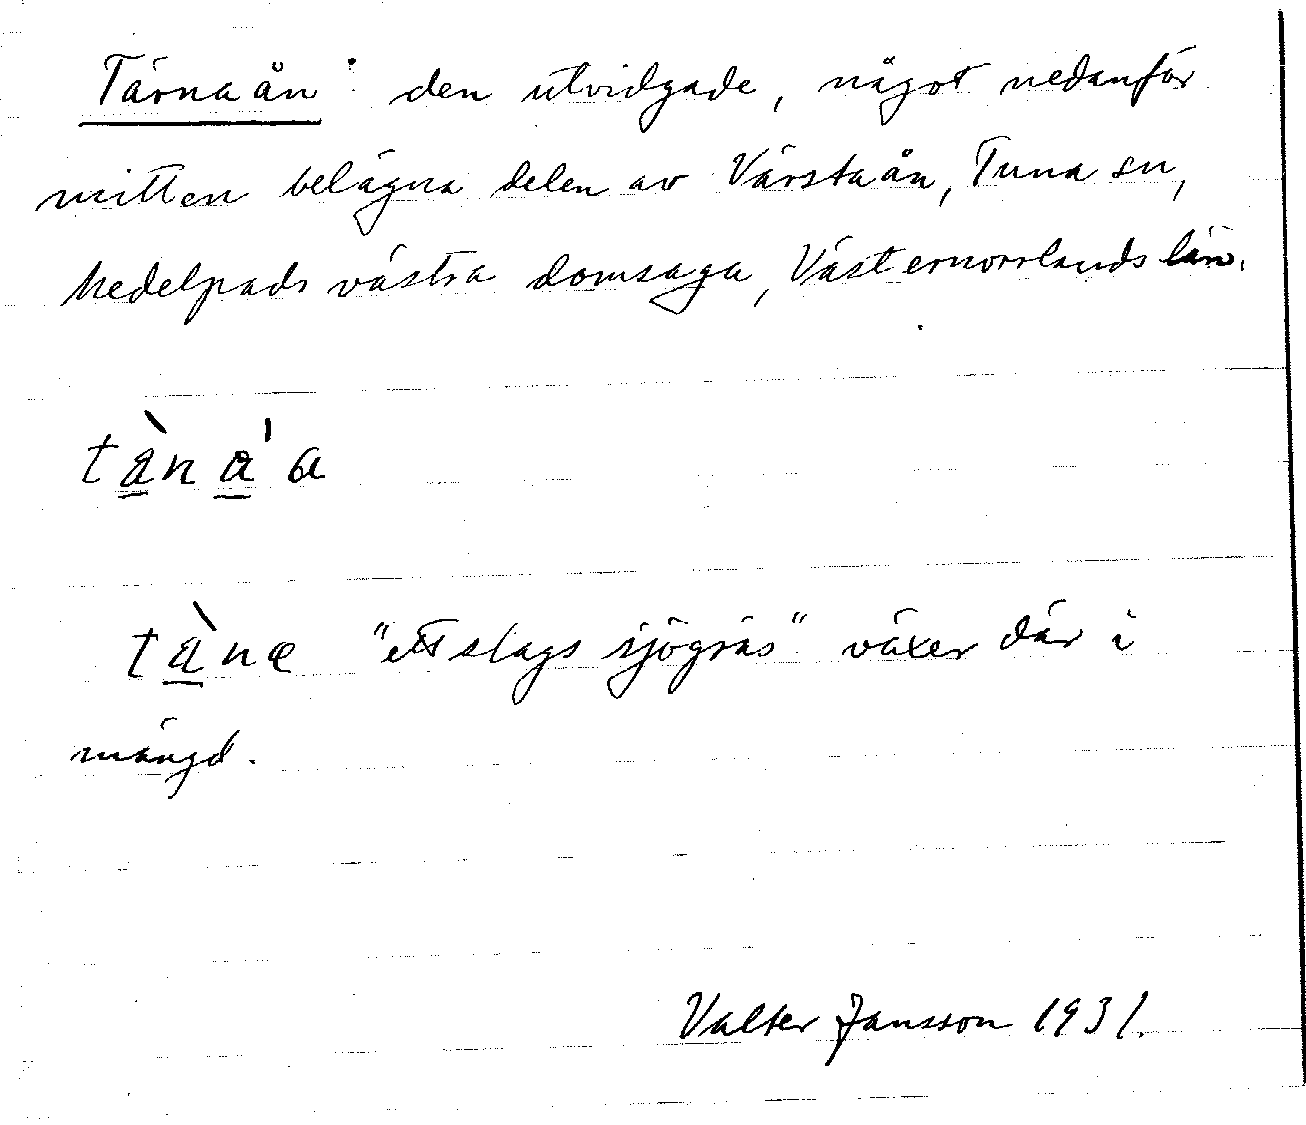 Tärnaån: den utvidgade, något nedanför
mitten belägna delen av Värstaån, Tuna sn,
Medelpads västra domsaga, Västernorrlands län.
tàna'a
tànɐ "ett slags sjögräs" växer där i
mängd.
Valter Jansson 1931.